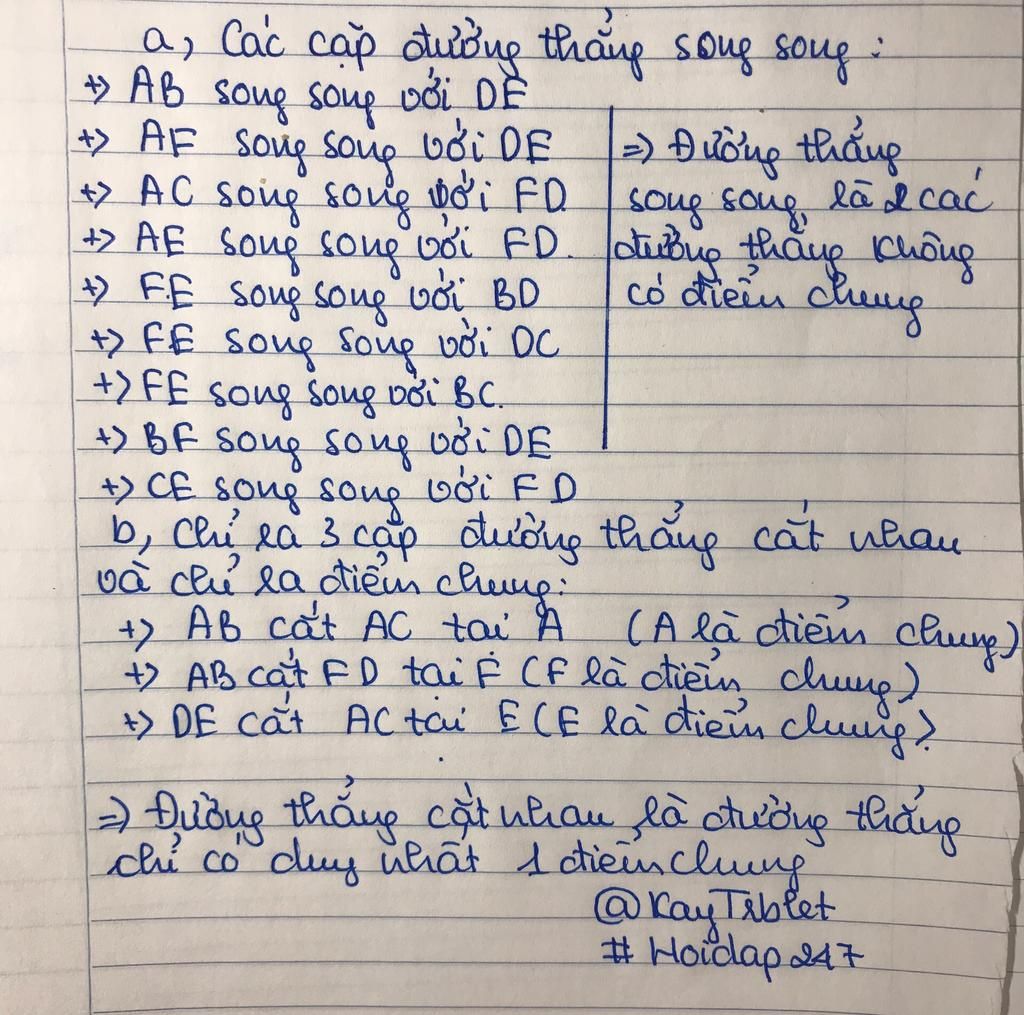 a, Các cặp đường thẳng song song :
+> AB song song với DE
+> AF song song với DE
+> AC song song với FD.
+> AE song song với FD.
+> FE song song với BD
+> FE song song với DC
+> FE song song với BC.
+> BF song song với DE
+> CE song song với FD
=> Đường thẳng
song song, là 2 các
đường thẳng không
có điểm chung
b, Chỉ ra 3 cặp đường thẳng cắt nhau
và chỉ ra điểm chung:
+> AB cắt AC tại A (A là điểm chung)
+> AB cắt FD tại F (F là điểm chung)
+> DE cắt AC tại E (E là điểm chung)
=> Đường thẳng cắt nhau, là đường thẳng
chỉ có duy nhất 1 điểm chung
@KayTrblet
# Hoidap247